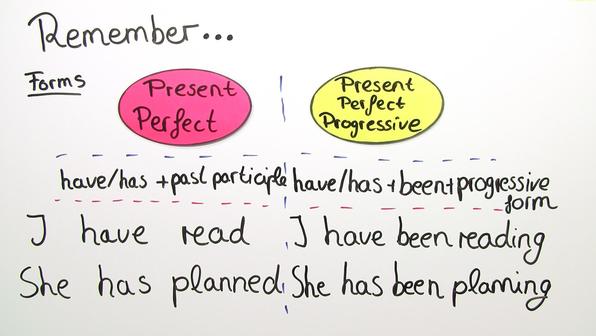 Remember...
Forms
Present
Perfect
Present
Perfect
Progressive
have/has + past participle
have/has + been + progressive
form
I have read
I have been reading
She has planned
She has been planning